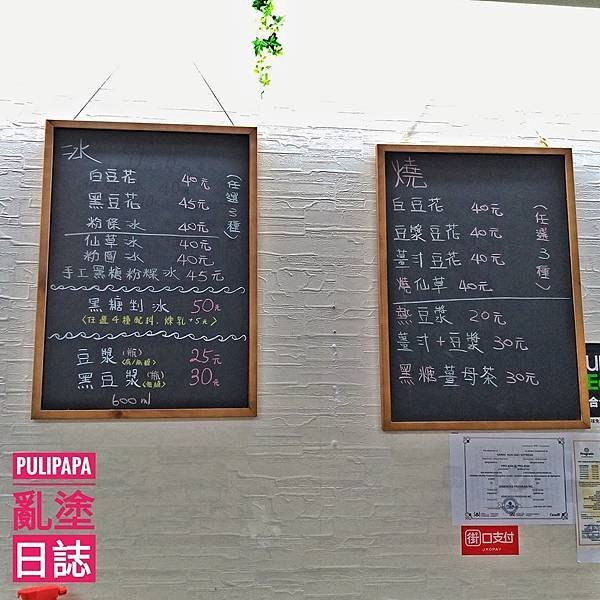 冰
白豆花 40元
黑豆花 45元
粉粿冰 40元
(任選3種)
仙草冰 40元
粉圓冰 40元
手工黑糖粉粿冰 45元
黑糖剉冰 50元
<任選4種配料,煉乳+5元>
豆漿(瓶)<有/無糖> 25元
黑豆漿(瓶)<無糖> 30元
600ml
燒
白豆花 40元
豆漿豆花 40元
薑汁豆花 40元
燒仙草 40元
(任選3種)
熱豆漿 20元
薑汁+豆漿 30元
黑糖薑母茶 30元
街口支付
JKOPAY
PULIPAPA
亂塗
日誌